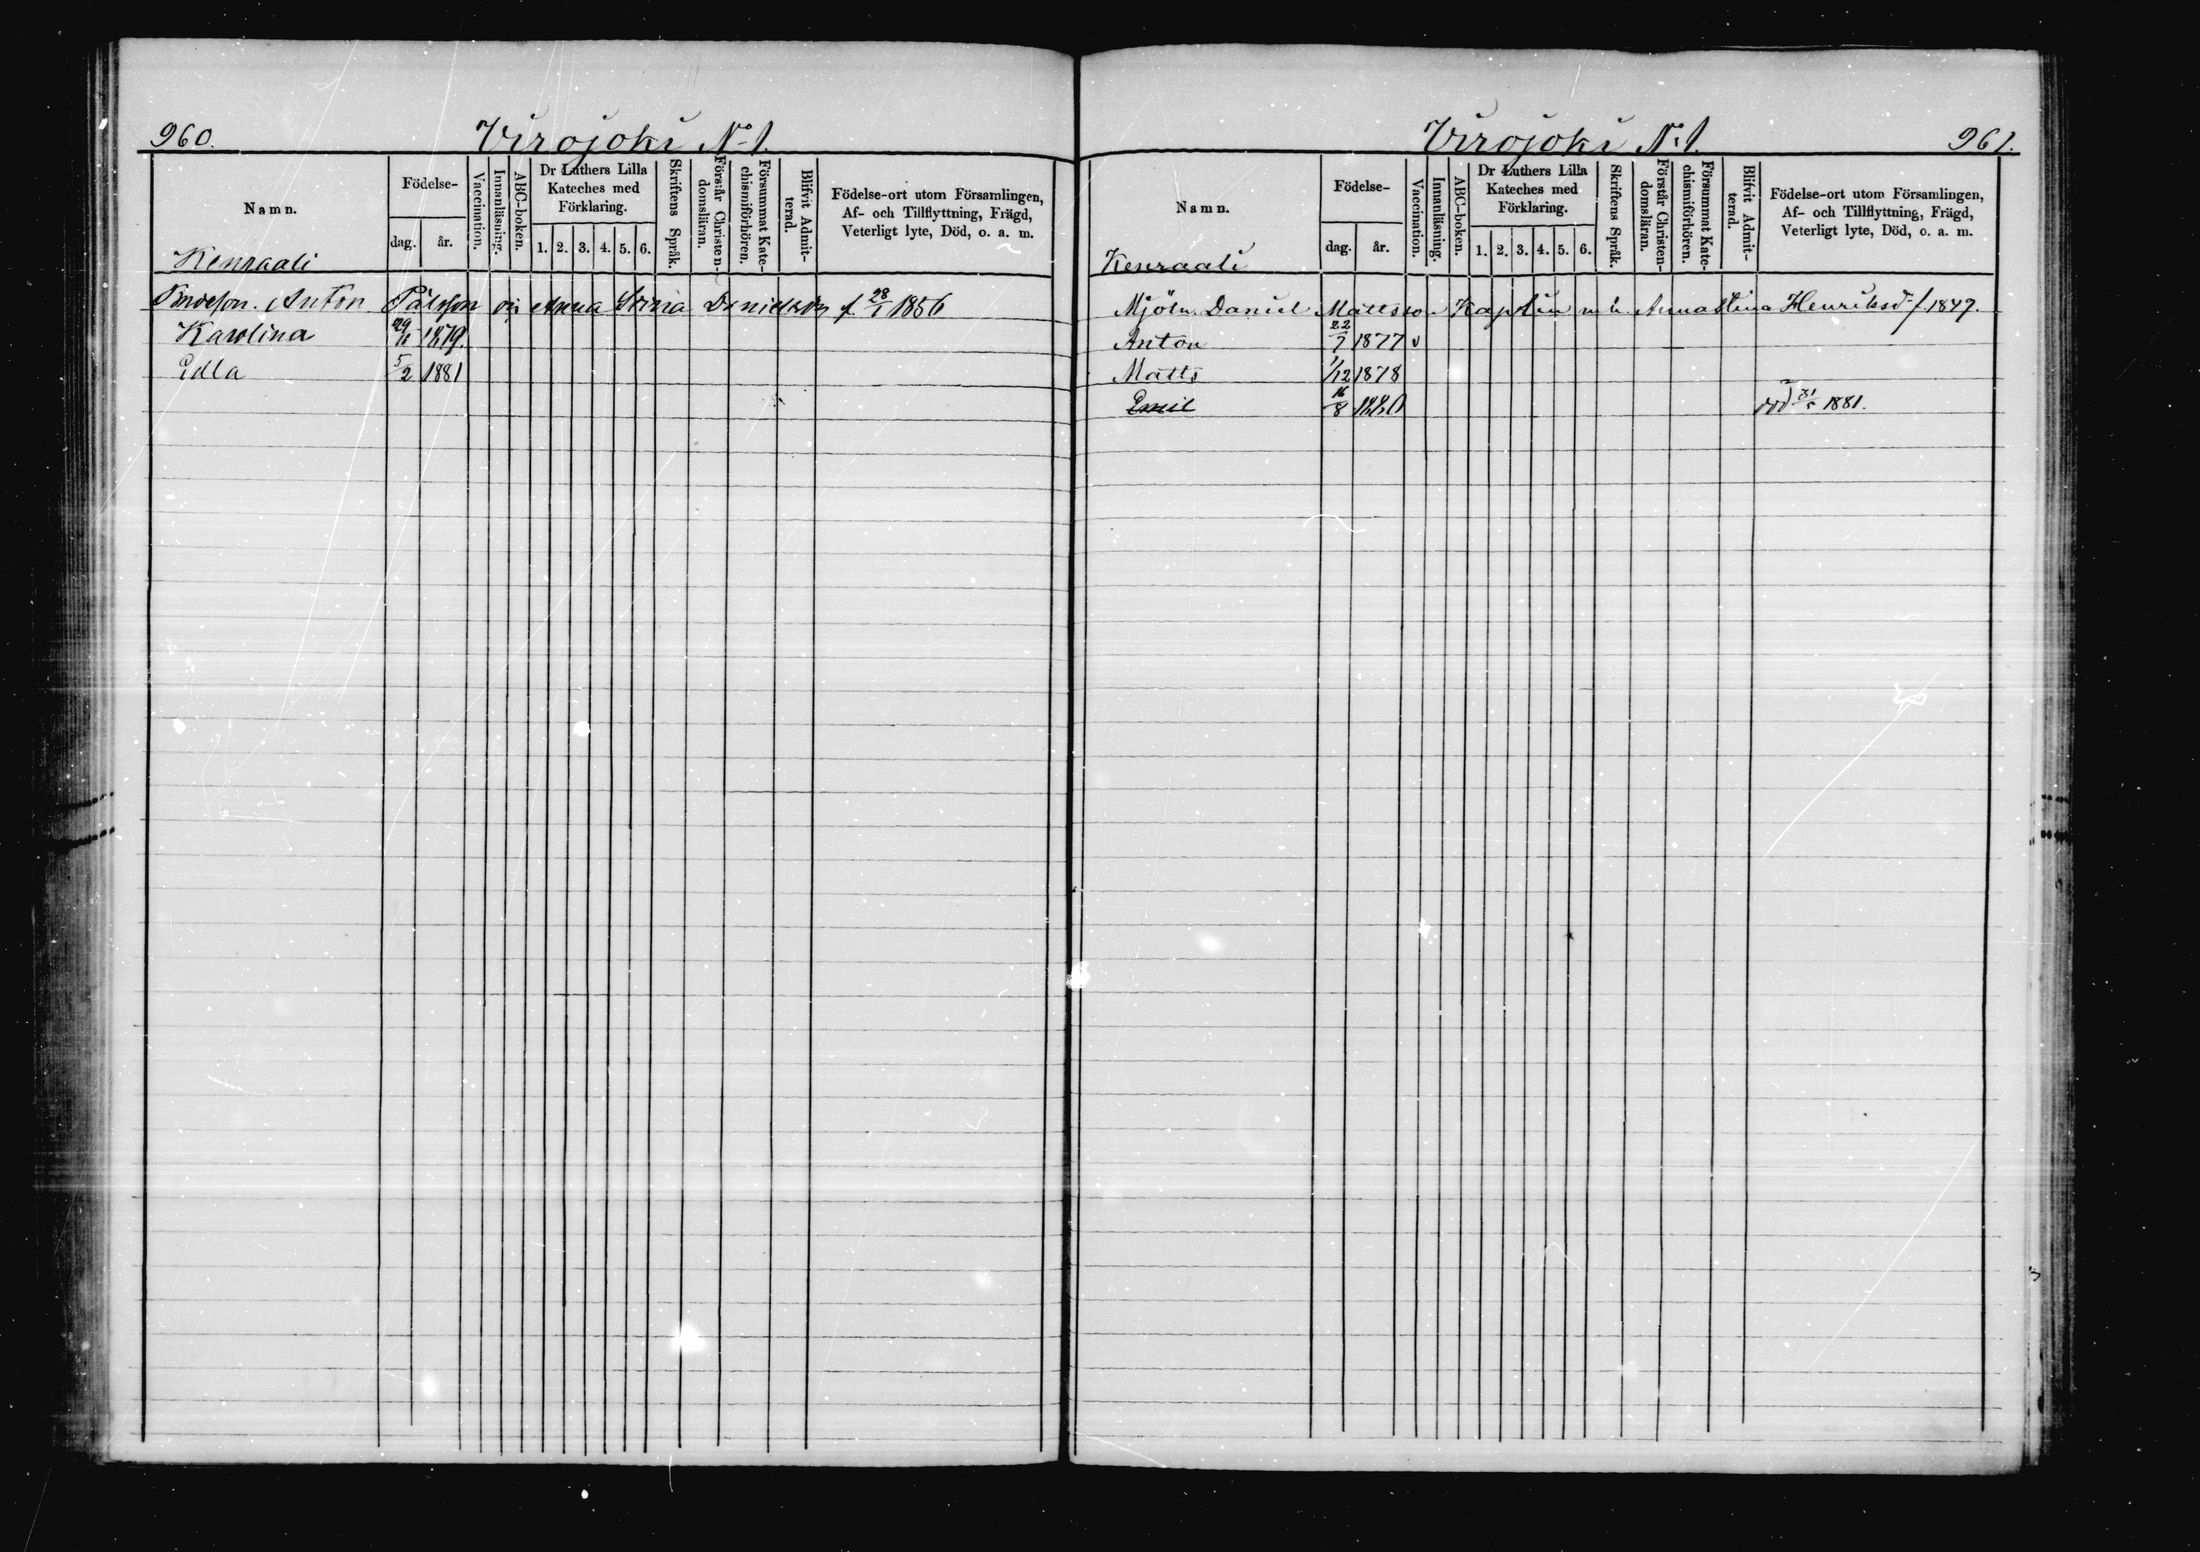 960.
Virojoki No 1.
Namn.
Födelse-
dag.
år.
Vaccination.
Innanläsning.
ABC-boken.
Dr Luthers Lilla
Kateches med
Förklaring.
1. 2. 3. 4. 5. 6.
Skriftens Språk.
Förstår Christen-
domsläran.
Försummat Kate-
chismiförhören.
Blifvit Admit-
terad.
Födelse-ort utom Församlingen,
Af- och Tillflyttning, Frägd,
Veterligt lyte, Död, o. a. m.
Kenraali
Anton Pålsson Anna Danielsdr f. 28/1 1856
Karolina 1879.
Edla 5/2 1881
Virojoki No 1.
961.
Namn.
Födelse-
dag.
år.
Vaccination.
Innanläsning.
ABC-boken.
Dr Luthers Lilla
Kateches med
Förklaring.
1. 2. 3. 4. 5. 6.
Skriftens Språk.
Förstår Christen-
domsläran.
Försummat Kate-
chismiförhören.
Blifvit Admit-
terad.
Födelse-ort utom Församlingen,
Af- och Tillflyttning, Frägd,
Veterligt lyte, Död, o. a. m.
Kenraali
Mjöln. Daniel Mattsson Anna Stina Henriksd f. 1847.
Anton 22/7 1877 v
Matts 1/12 1878
Emil 16/8 1880 död 1881.